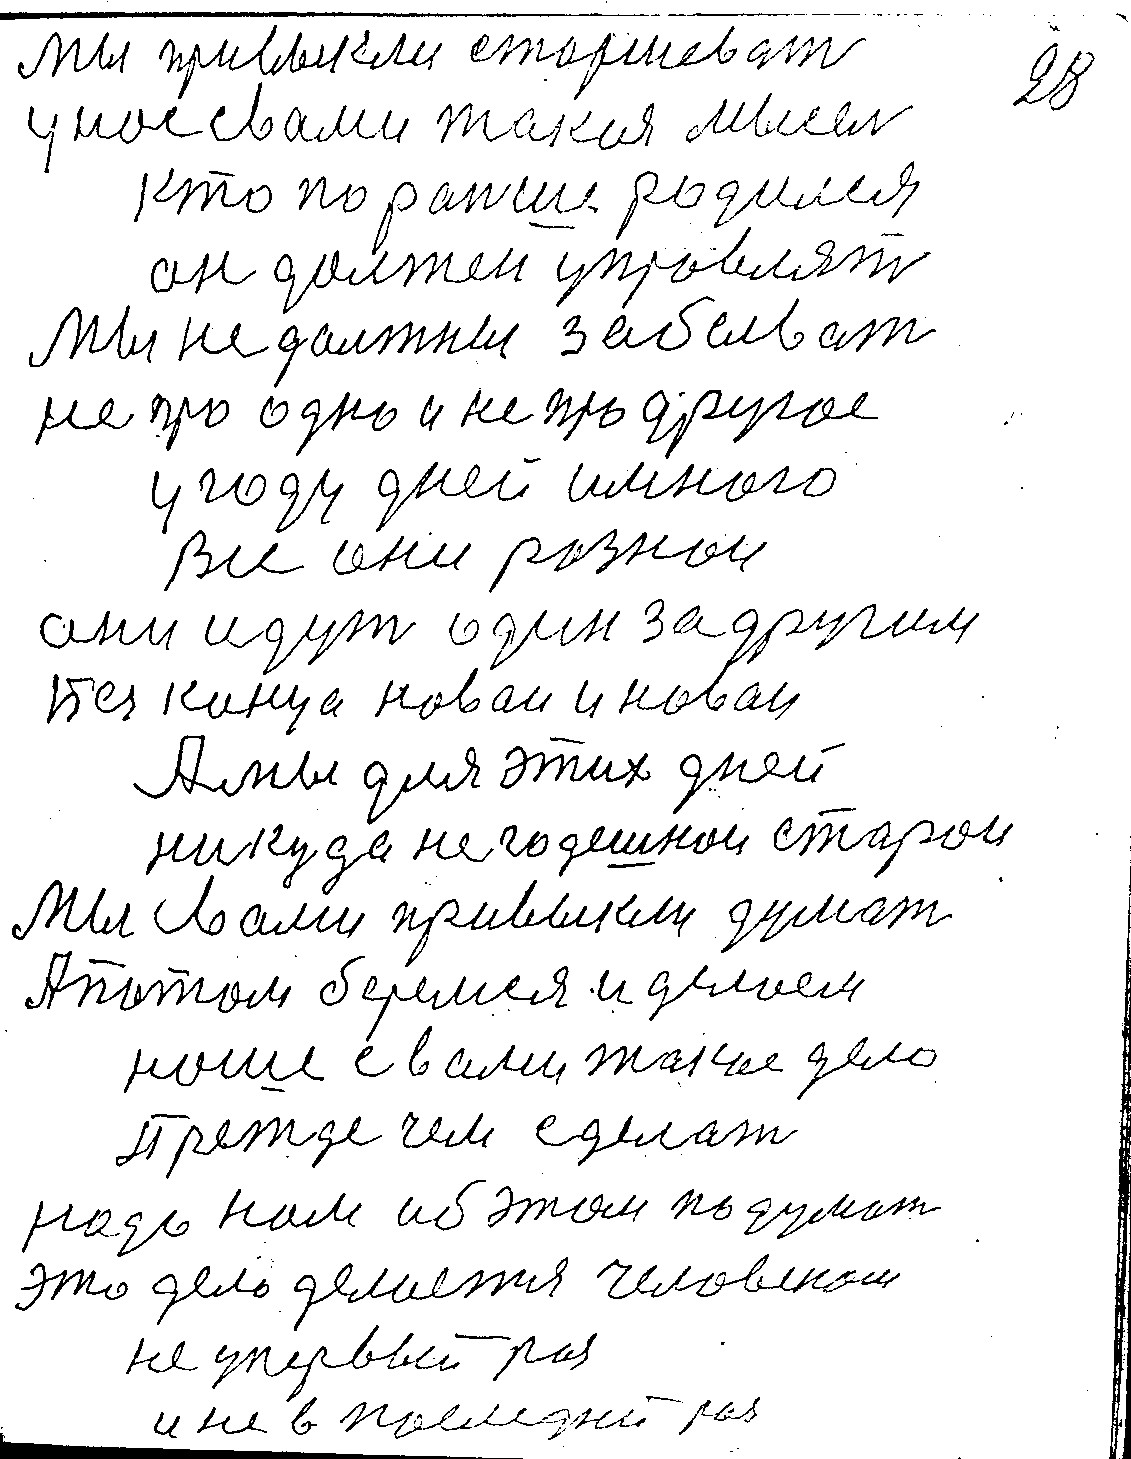 Мы привыкли старшеват
28
у нос свами такая мысел
кто пораньше родился
он должен управлят
Мы не должны забыват
не про одно и не про другое
у году дней и много
Все они разнои
они идут один за другим
без конца новаи и новаи
А мы для этих дней
никуда не годешнои старои
Мы свами привыкли думат
А потом беремся и делоем
ноше с вами такое дело
Прежде чем сделат
надо ном об этом подумат
это дело делоется человеком
не упервый роз
и не в последний роз